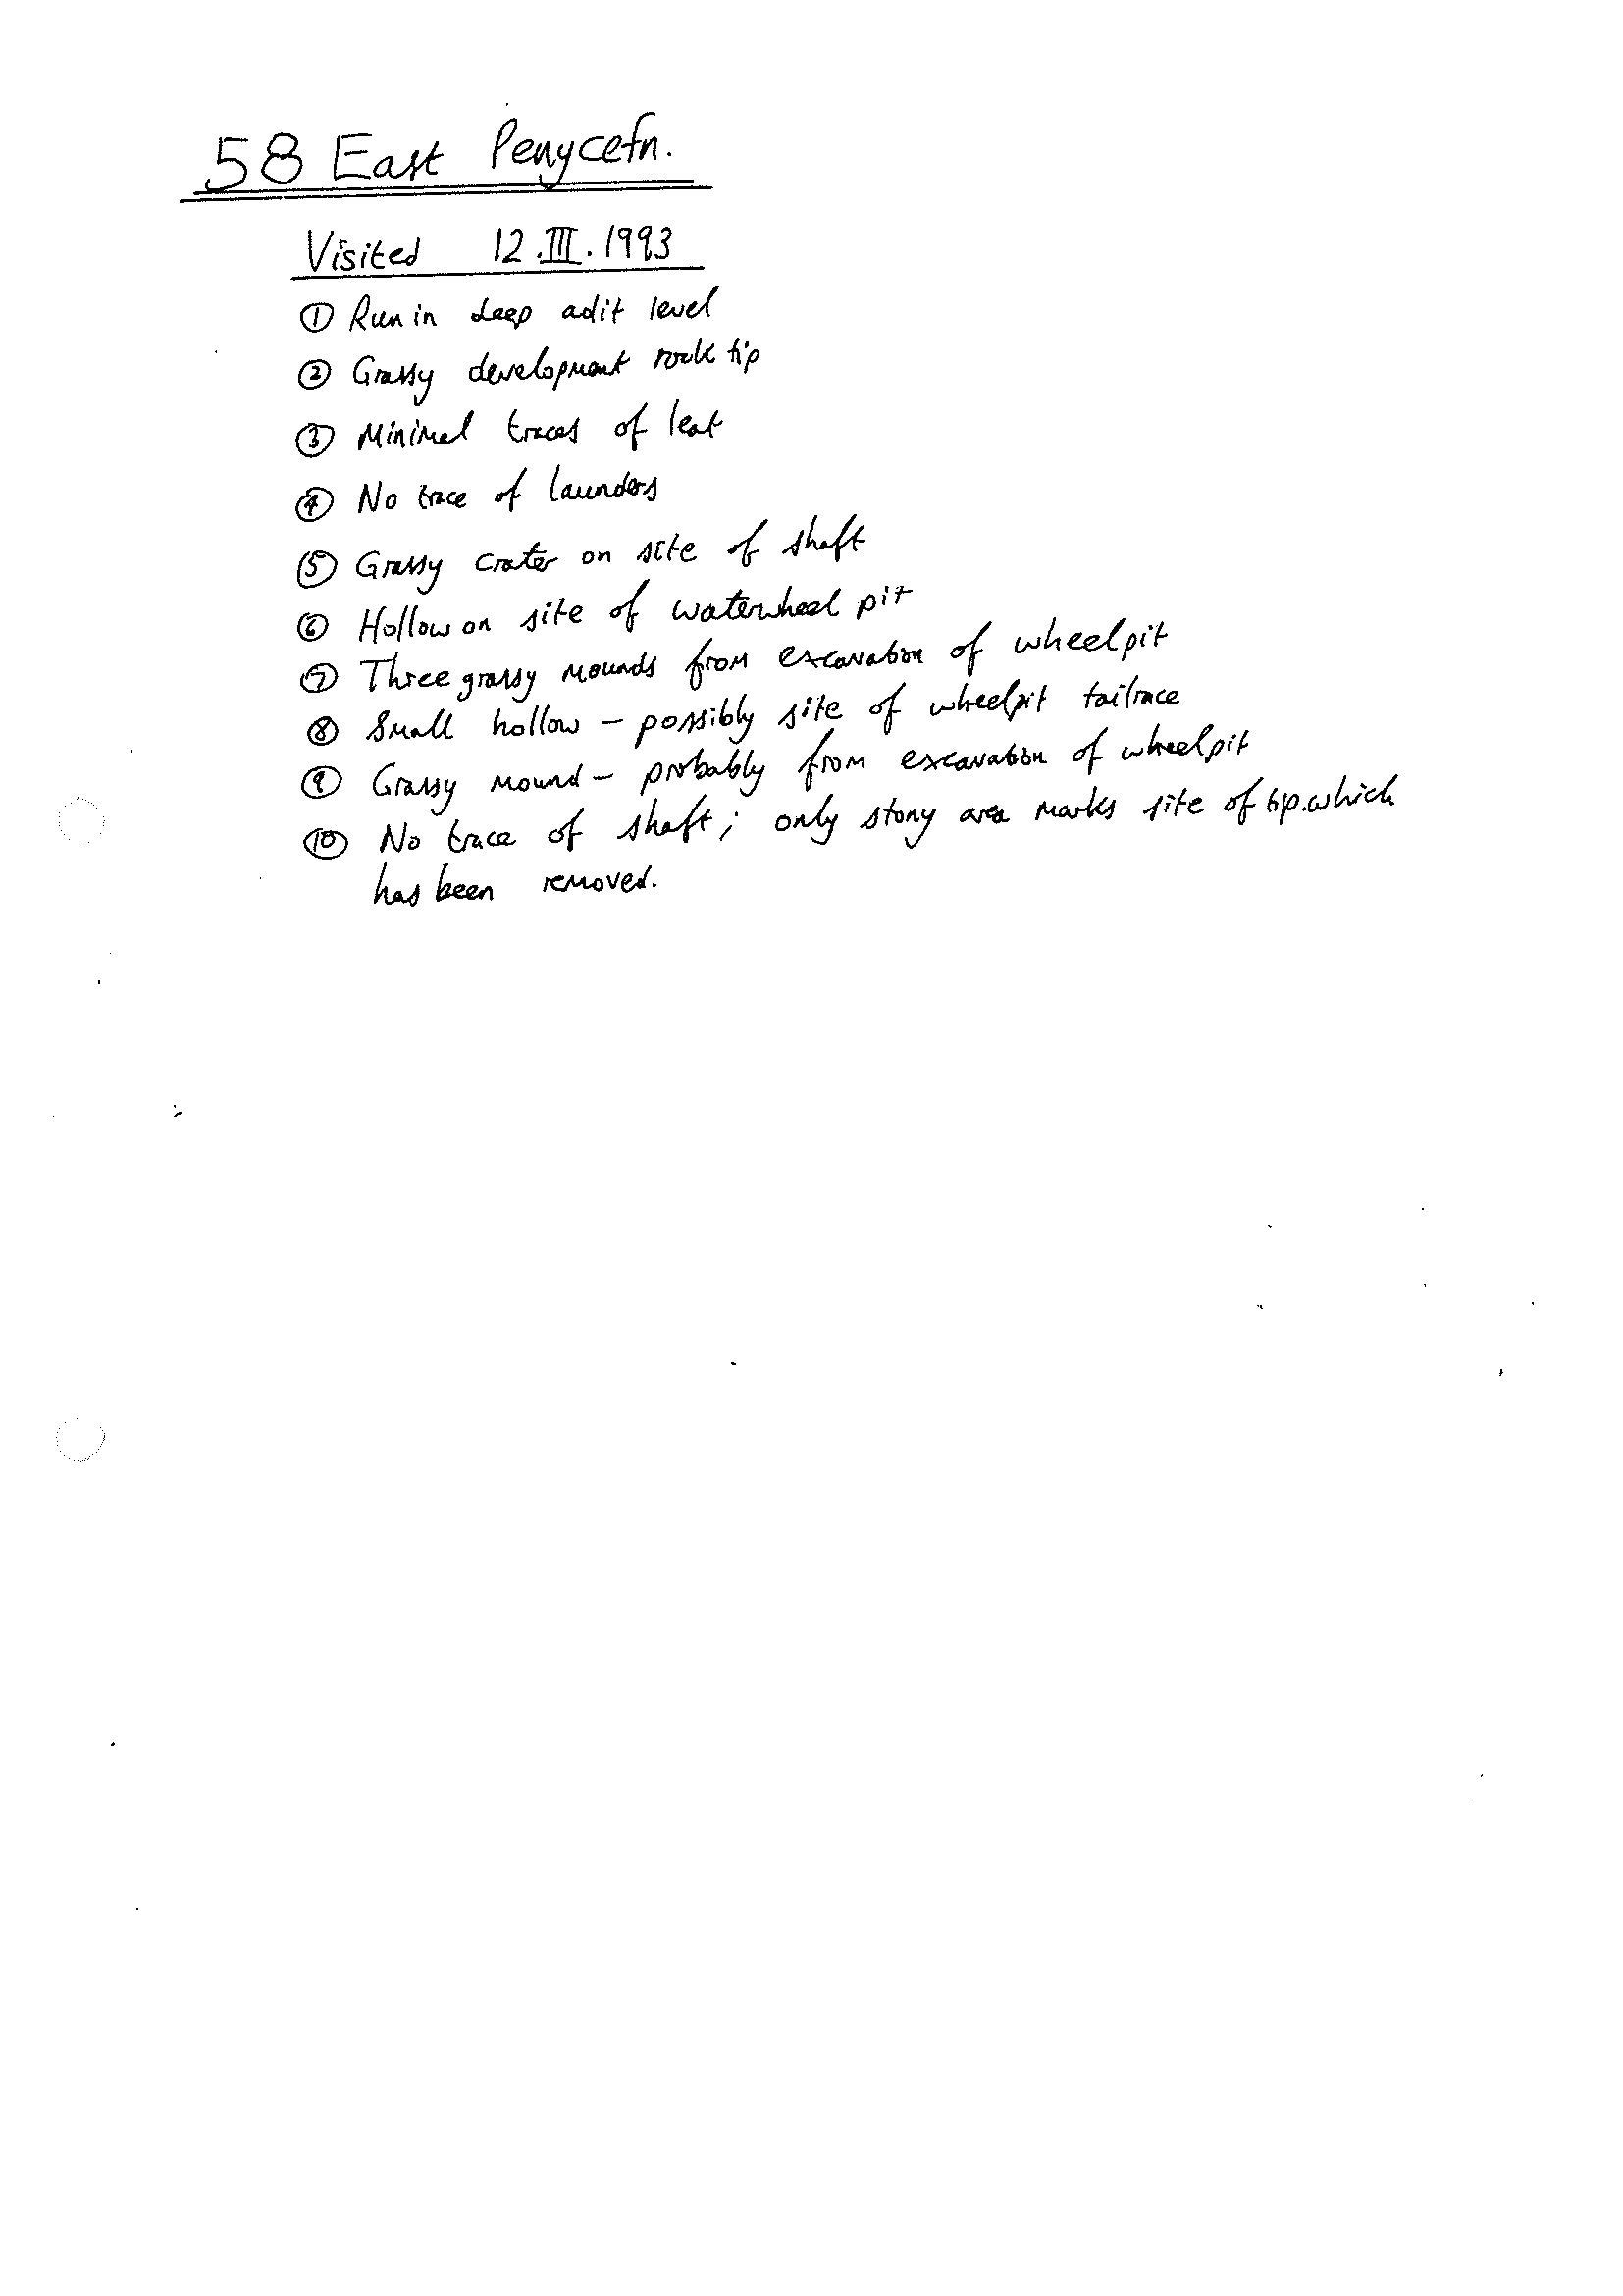 58 East Penycefn.
Visited 12.III.1993
① Run in deep adit level
② Grassy development rock tip
③ Minimal traces of leat
④ No trace of launders
⑤ Grassy crater on site of shaft
⑥ Hollow on site of waterwheel pit
⑦ Three grassy mounds from excavation of wheelpit
⑧ Small hollow – possibly site of wheelpit tailrace
⑨ Grassy mound – probably from excavation of wheelpit
⑩ No trace of shaft; only stony area marks site of tip.which
has been removed.